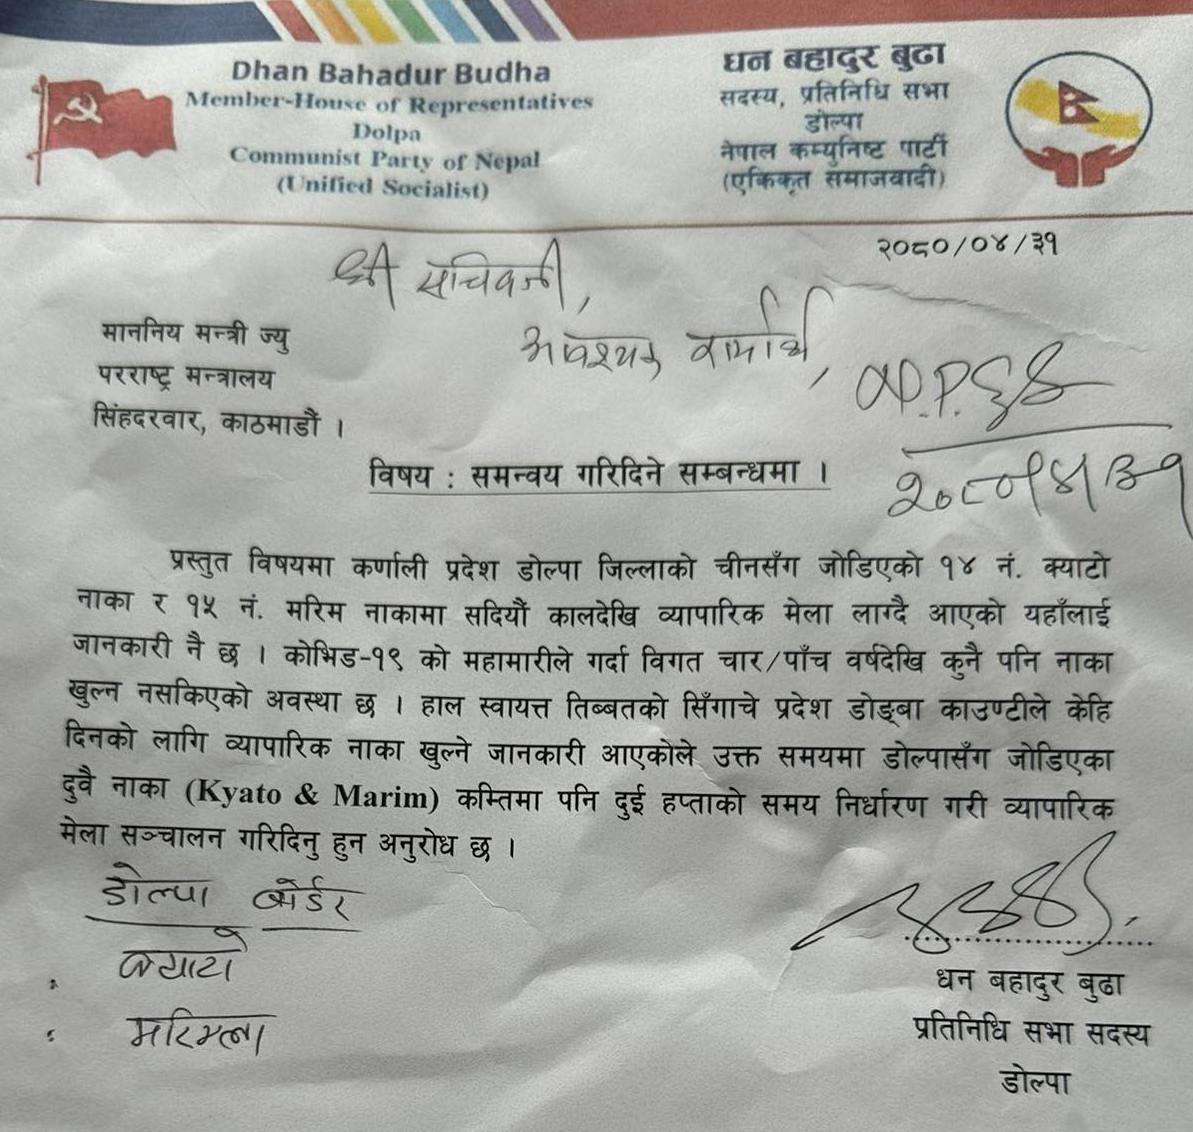 Dhan Bahadur Budha
Member-House of Representatives
Dolpa
Communist Party of Nepal
(Unified Socialist)
धन बहादुर बुढा
सदस्य, प्रतिनिधि सभा
डोल्पा
नेपाल कम्युनिष्ट पार्टी
(एकिकृत समाजवादी)
२०८०/०४/३१
श्री सचिवजी,
आवश्यक कार्यार्थ,
माननिय मन्त्री ज्यु
परराष्ट्र मन्त्रालय
सिंहदरवार, काठमाडौं ।
२०८०/४/३१
विषय : समन्वय गरिदिने सम्बन्धमा ।
प्रस्तुत विषयमा कर्णाली प्रदेश डोल्पा जिल्लाको चीनसँग जोडिएको १४ नं. क्याटो
नाका र १५ नं. मरिम नाकामा सदियौं कालदेखि व्यापारिक मेला लाग्दै आएको यहाँलाई
जानकारी नै छ । कोभिड-१९ को महामारीले गर्दा विगत चार/पाँच वर्षदेखि कुनै पनि नाका
खुल्न नसकिएको अवस्था छ । हाल स्वायत्त तिब्बतको सिँगाचे प्रदेश डोङ्बा काउण्टीले केहि
दिनको लागि व्यापारिक नाका खुल्ने जानकारी आएकोले उक्त समयमा डोल्पासँग जोडिएका
दुवै नाका (Kyato & Marim) कम्तिमा पनि दुई हप्ताको समय निर्धारण गरी व्यापारिक
मेला सञ्चालन गरिदिनु हुन अनुरोध छ ।
डोल्पा बोर्डर
क्याटो
मरिमला
धन बहादुर बुढा
प्रतिनिधि सभा सदस्य
डोल्पा